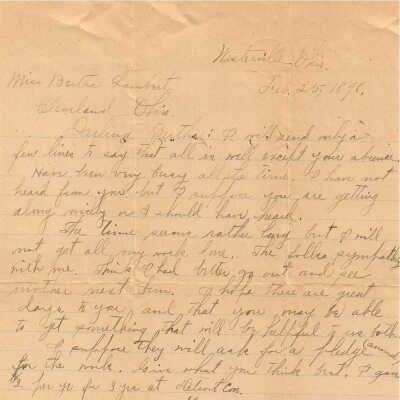 Westerville, Ohio.
Miss Bertha Lambert, Feb. 25, 1898.
Cleveland Ohio.
Darling Bertha: I will send only a
few lines to say that all is well except your absence.
Have been very busy all the time. I have not
heard from you but I suppose you are getting
along nicely or I should have heard.
The time seems rather long but I will
not get all my work done. The folks sympathy
with me. Think I had better go out and see
mother next time. I hope these are great
days to you, and that you may be able
to get something that will be helpful to us both.
I suppose they will ask for a pledge
for the work. Give what you think best. I gave
per yr for 3 yrs at